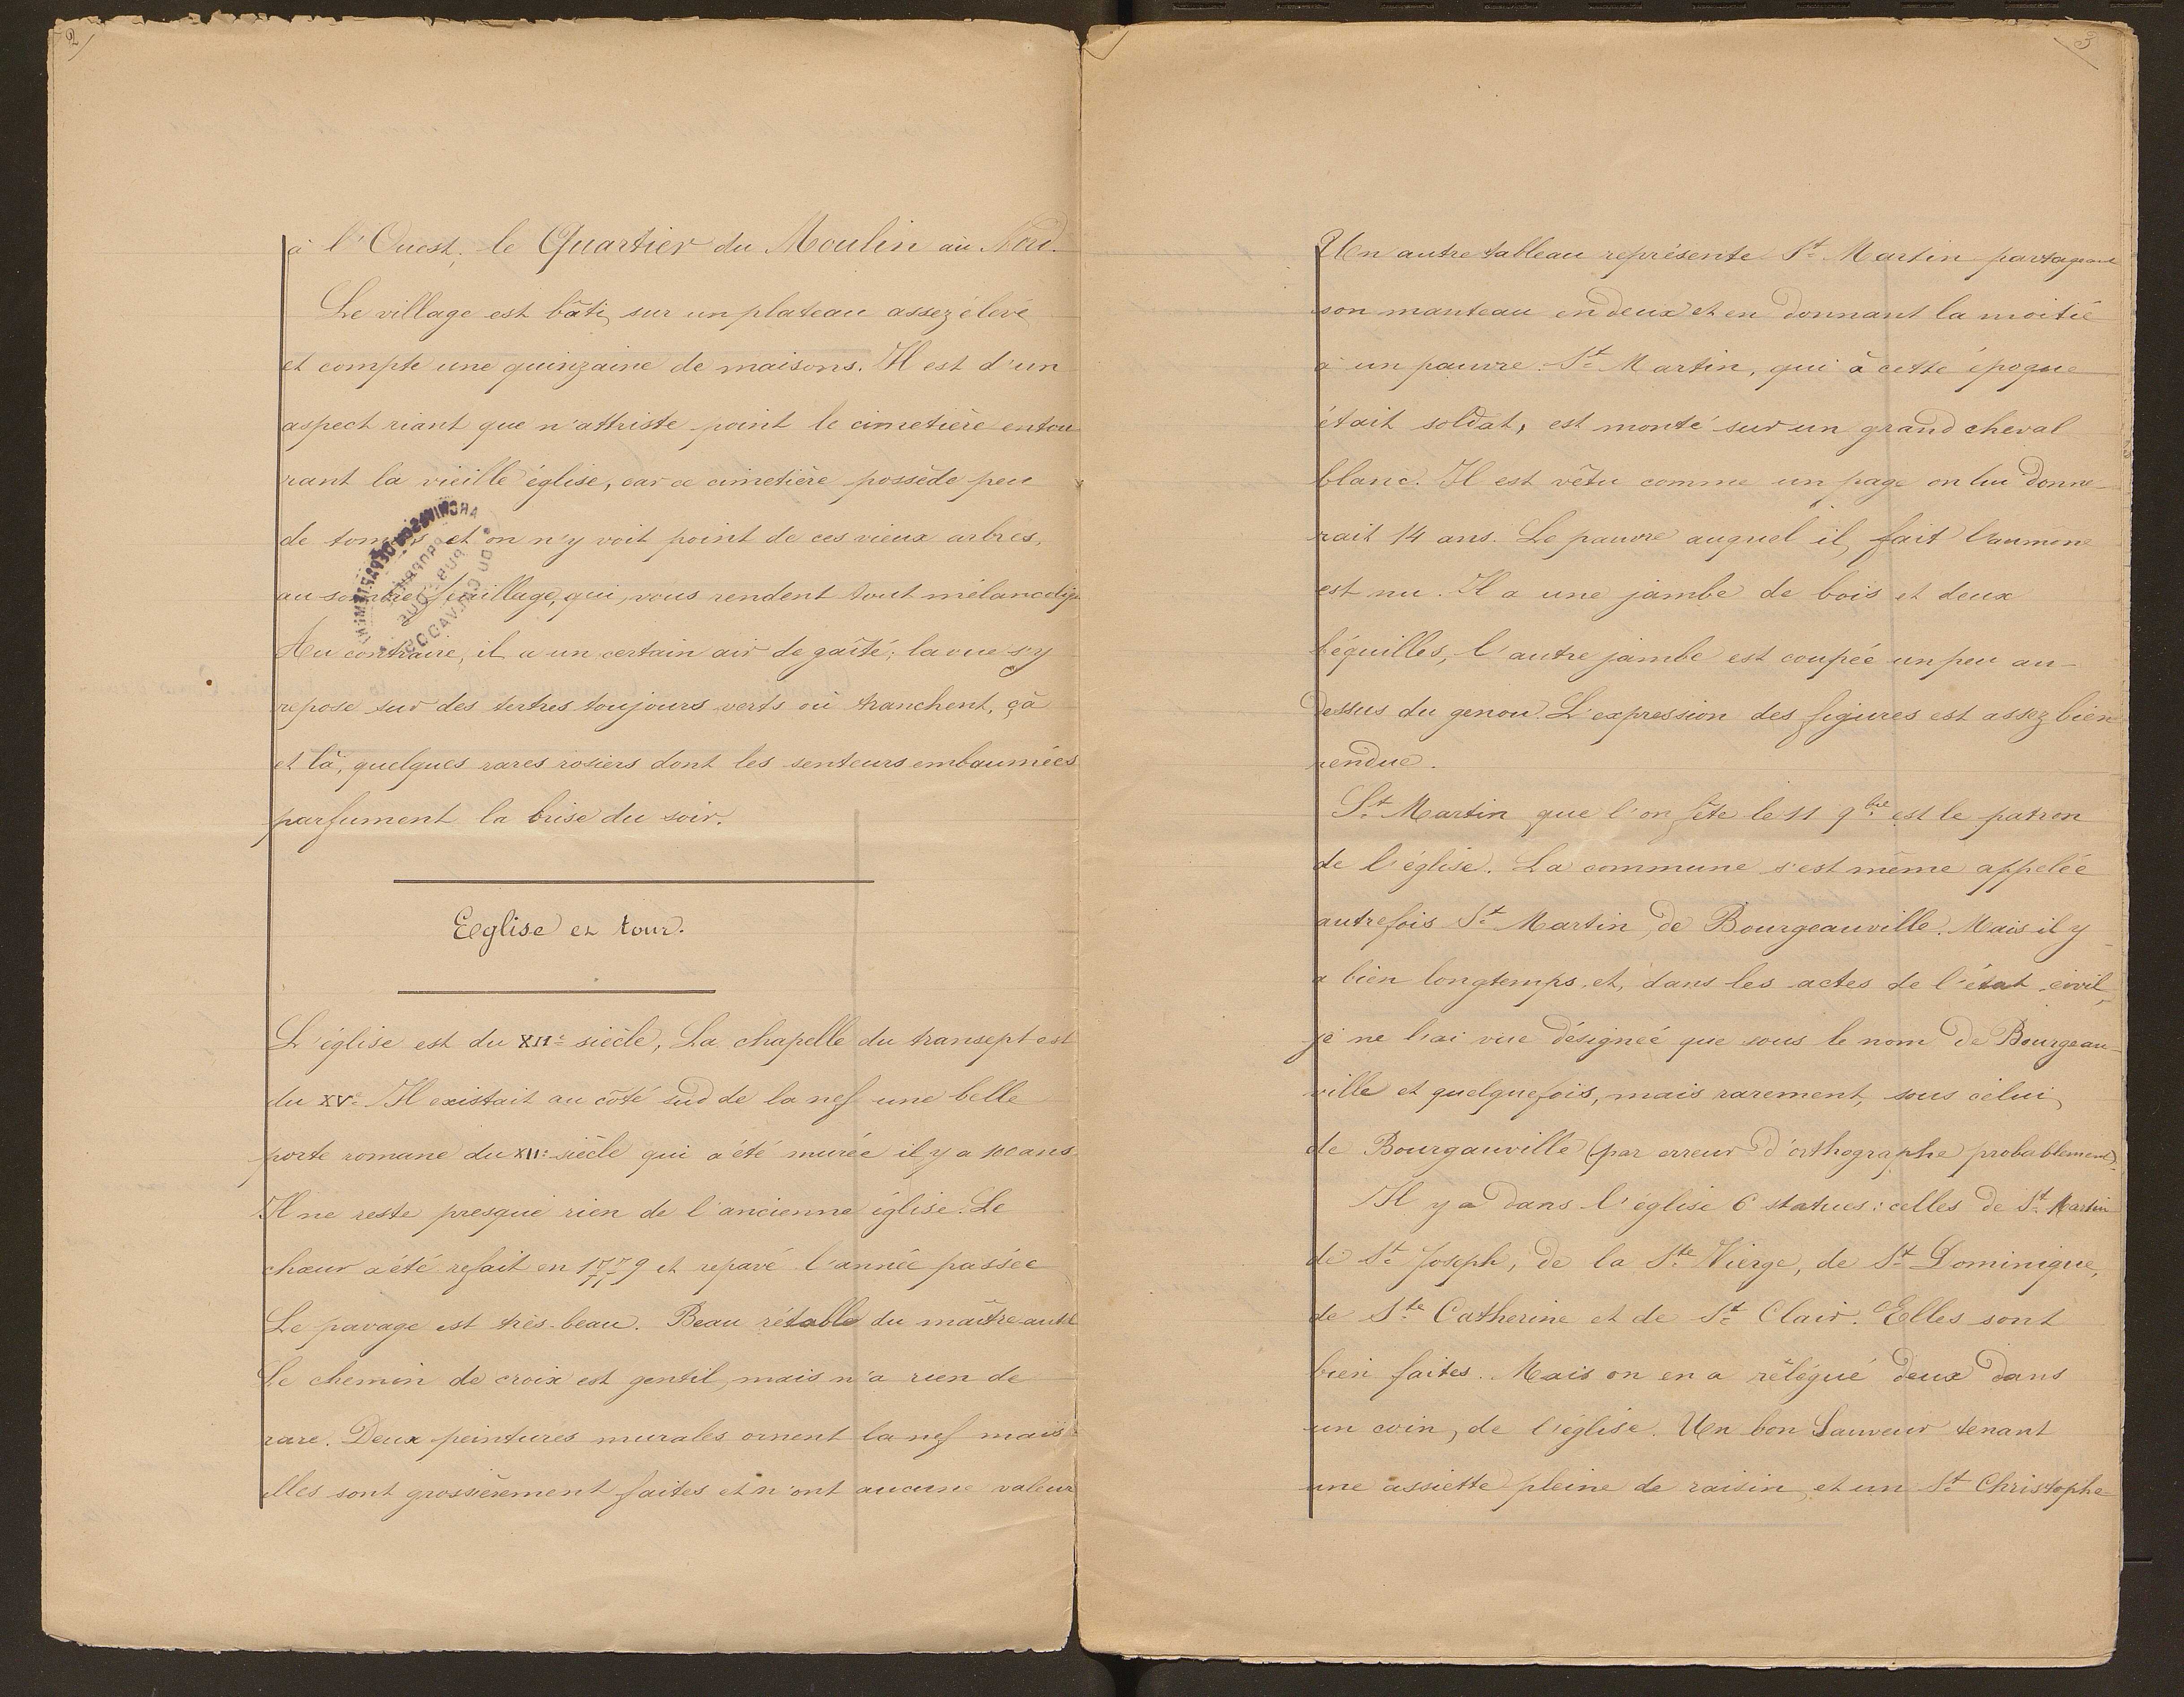 2
à l'Ouest; le Quartier du Moulin au Nord.
Le village est bâti, sur un plateau assez élevé
et compte une quinzaine de maisons. Il est d'un
aspect riant que n'attriste point le cimetière entou
rant la vieille église, car ce cimetière possède peu
de tombes et on n'y voit point de ces vieux arbres,
au sombre feuillage, qui, vous rendent tout mélancolique
Au contraire, il a un certain air de gaîté; la vue s'y
repose sur des tertres toujours verts où tranchent, çà
et là, quelques rares rosiers dont les senteurs embaumées
parfument la brise du soir.
Eglise et tour.
L'église est du XIIe siècle, La chapelle du transept est
du XVe Il existait au côté sud de la nef une belle
porte romane du XIIe siècle qui a été murée il y a 100 ans
Il ne reste presque rien de l'ancienne église. Le
chœur a été refait en 1779 et repavé l'année passée
Le pavage est très-beau. Beau rétable du maître-autel
Le chemin de croix est gentil, mais n'a rien de
rare. Deux peintures murales ornent la nef mais
elles sont grossièrement faites et n'ont aucune valeur
3
Un autre tableau représente St Martin partageant
son manteau en deux et en donnant la moitié
à un pauvre. St Martin, qui à cette époque
était soldat, est monté sur un grand cheval
blanc. Il est vêtu comme un page on lui donne-
rait 14 ans. Le pauvre auquel il, fait l'aumone
est nu. Il a une jambe de bois et deux
béquilles, l'autre jambe est coupée un peu au-
dessus du genou. L'expression des figures est assez bien
rendue.
St Martin que l'on fête le 11 9bre est le patron
de l'église. La commune s'est même appelée
autrefois St Martin de Bourgeauville. Mais il y
a bien longtemps et, dans les actes de l'état civil,
je ne l'ai vue désignée que sous le nom de Bourgeau-
ville et quelquefois, mais rarement, sous celui,
de Bourgauville (par erreur d'orthographe probablement).
Il y a dans l'église 6 statues: celles de St Martin
de St Joseph, de la Ste Vierge, de St Dominique,
de Ste Catherine et de St Clair. Elles sont
bien faites. Mais on en a rélégué deux dans
un coin, de l'église. Un bon Sauveur tenant
une assiette pleine de raisin, et un St Christophe